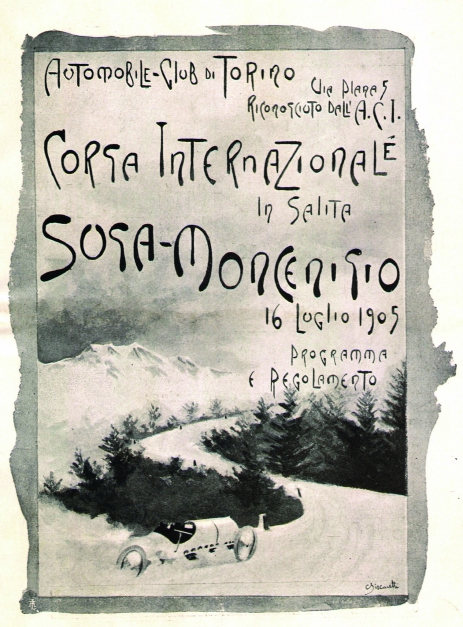 AUTOMOBILE-CLUB DI TORINO
Via Plana 5
RICONOSCIUTO DALL'A.C.I.
CORSA INTERNAZIONALE
IN SALITA
SUSA-MONCENISIO
16 LUGLIO 1905
PROGRAMMA
E REGOLAMENTO